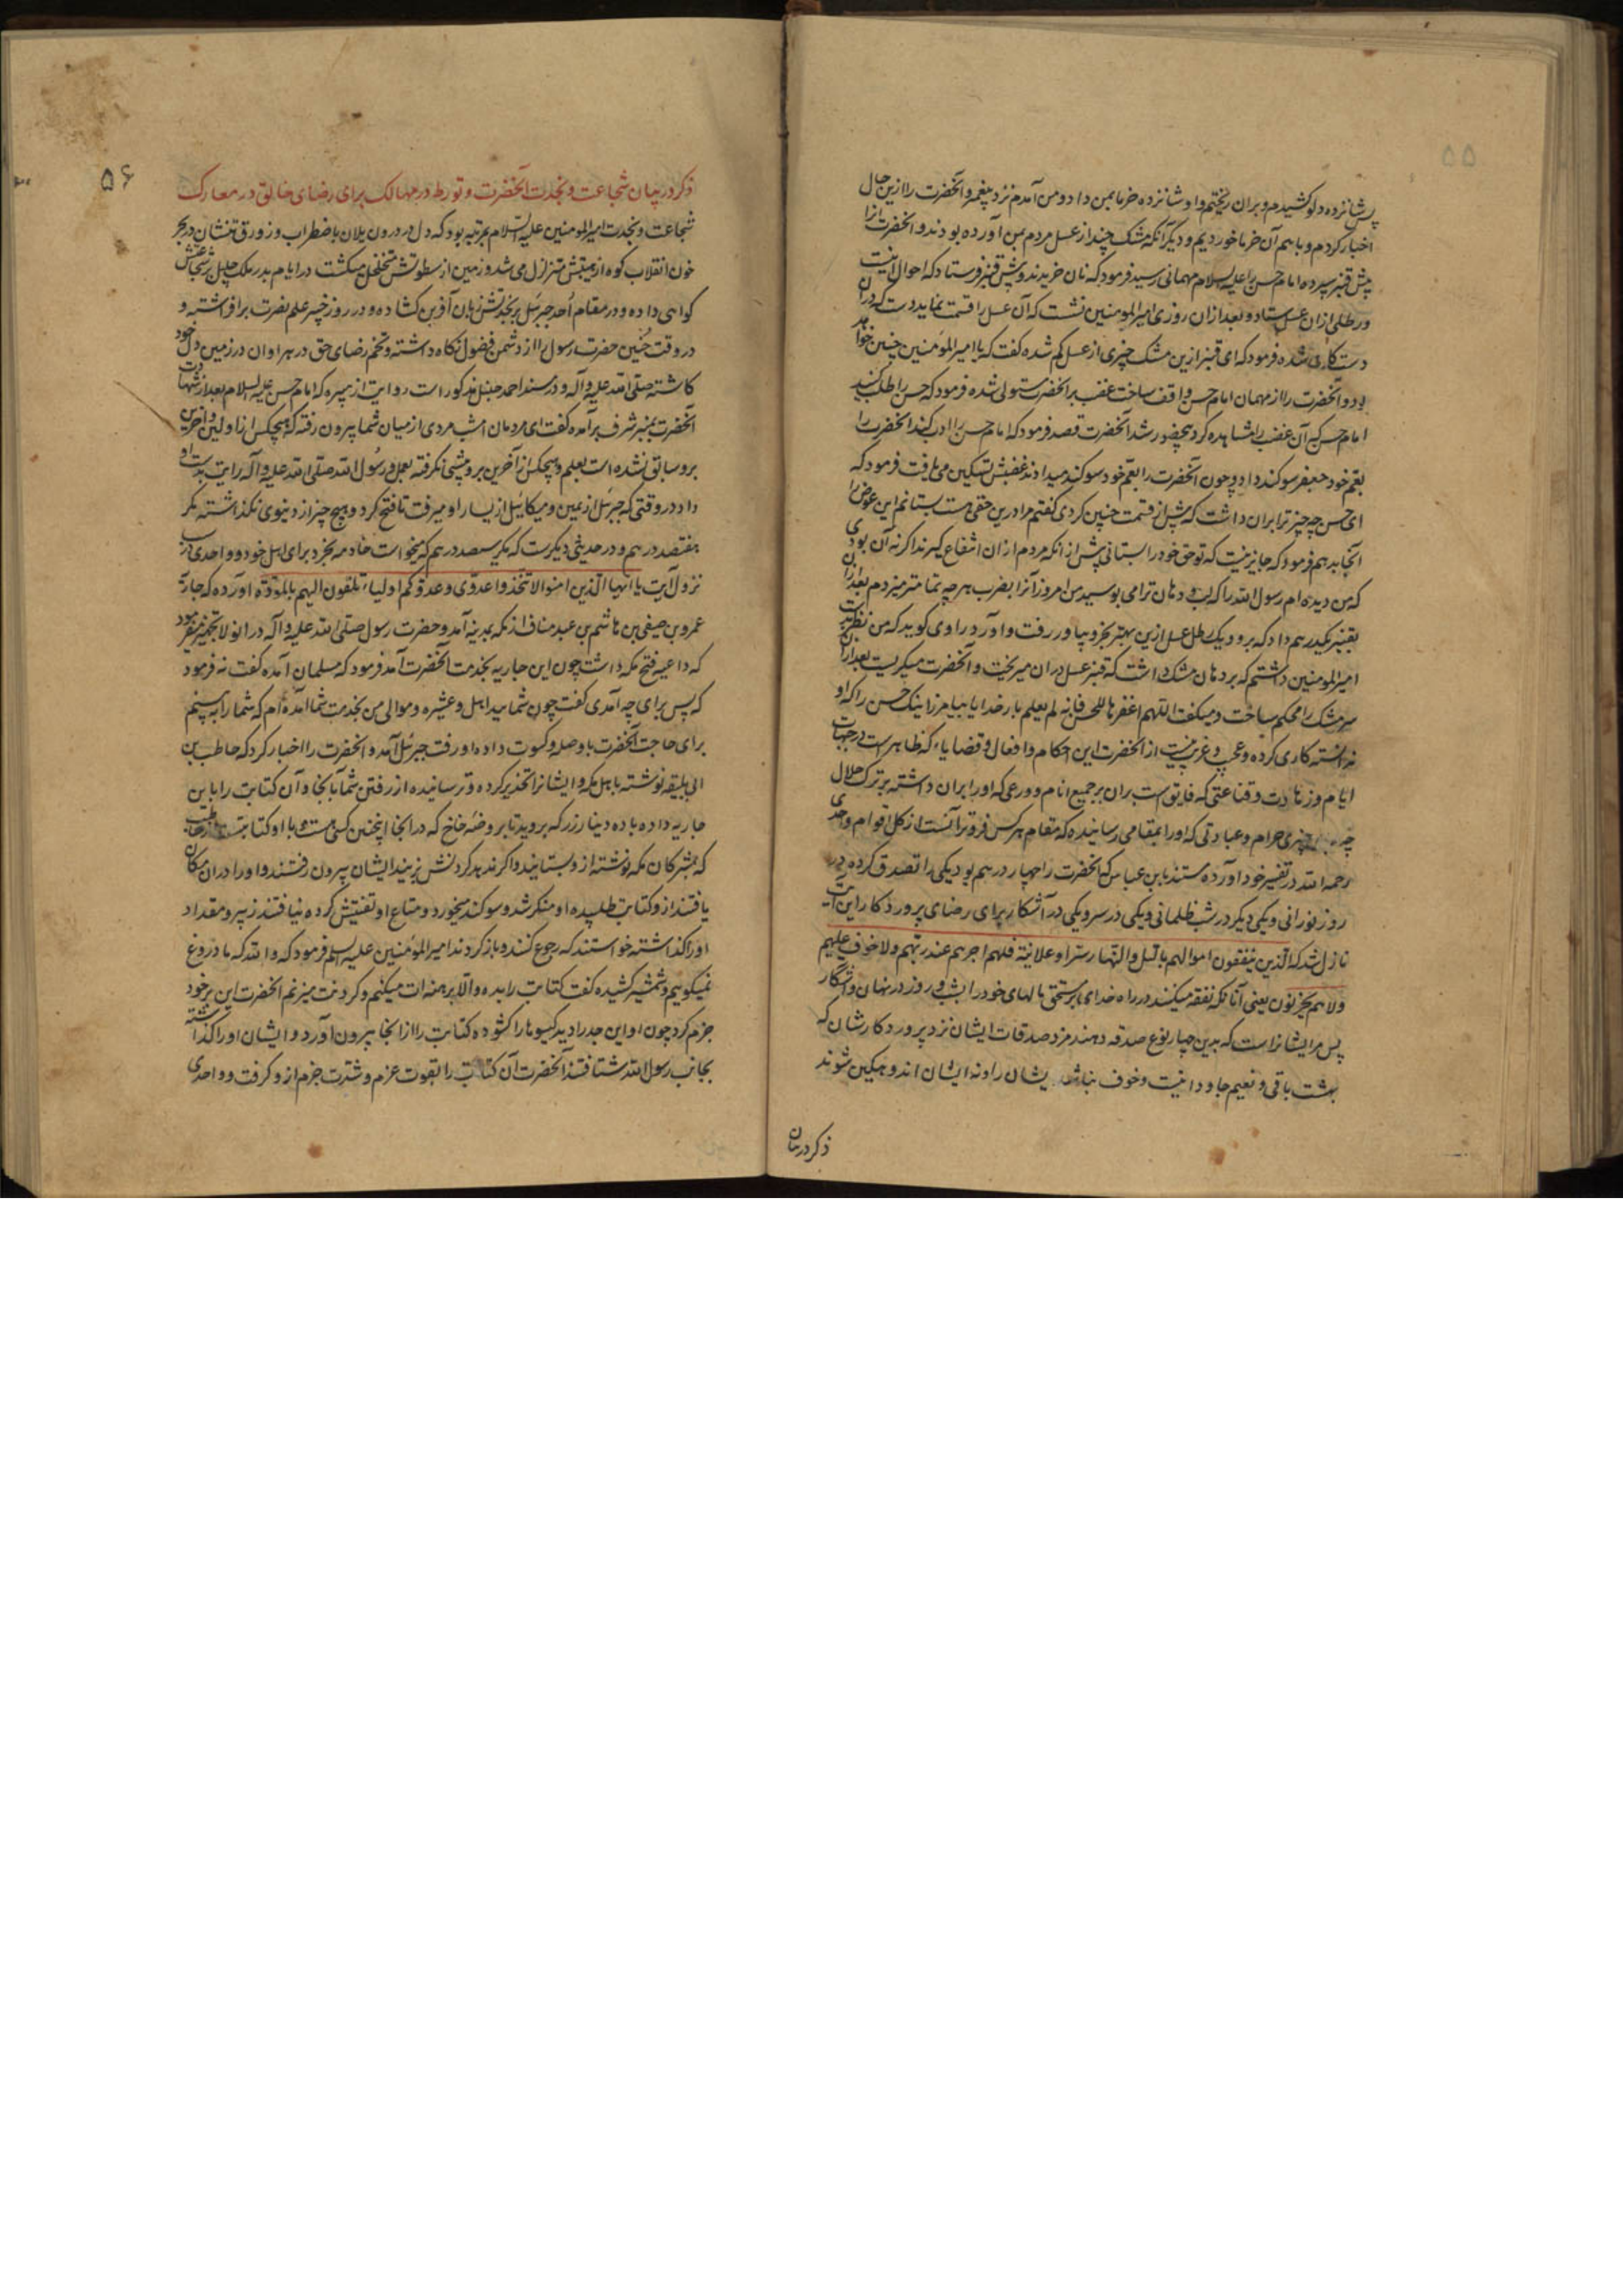 ۵۵
پس شانزده دلو کشیدم و بران ریختم و او شانزده خرما بمن داد و من آمدم نزد پیغمبر و آنحضرت را ازین حال
اخبار کردم و با هم آن خرما خوردیم و دیگر آنکه مشک چند از عسل مردم بمن آورده بودند و انحضرت انرا
پیش قنبر سپرده امام حسن را علیه السلام مهمانی رسید فرمود که نان خریدند و پیش قنبر فرستاد که احوال اینست
و رطلی ازان عسل بستاد و بعد ازان روزی امیرالمومنین نشست که آن عسل را قسمت نماید دست که دران
دست کاری شده فرمود که ای قنبر ازین مشک چیزی از عسل کم شده گفت که یا امیر المومنین چنین خواهد
بود و آنحضرت را از مهمان امام حسن واقف ساخت غضب بر انحضرت مستولی شده فرمود که حسن را طلب کنید
امام حسن که آن غضب را مشاهده کرد بحضور شد آنحضرت قصد فرمود که امام حسن را ادب کند انحضرت را
بعم خود جعفر سوکند داد و چون آنحضرت را بعم خود سوکند میدادند غضبش تسکین می یافت فرمود که
ای حسن چه چیز ترا بران داشت که پیش از قسمت چنین کردی گفتم مرا درین حقی هست بستانم این عوض را
انجا بدهم فرمود که جایز نیست که تو حق خود را بستانی پیش از انکه مردم ازان انتفاع گیرند اگر نه آن بودی
که من دیده ام رسول الله را که لب و دهان ترا می بوسید من امروز آنرا بضرب هر چه تمامتر میزدم بعد ازان
بقنبر یکدرهم داد که برو و یک رطل عسل ازین بهتر بخر و بیاور رفت و آورد راوی گوید که من نظر بدست
امیرالمومنین داشتم که بر دهان مشک داشت که قنبر عسل دران میریخت و آنحضرت میکریست بعد ازان
سر مشک را محکم ساخت و میکفت اللهم اغفرها للحسن فانه لم یعلم بار خدایا بیامرز اینک حسن را که او
ندانسته کاری کرده و عجب و غریب نیست از انحضرت این احکام و افعال و قضایاء که ظاهرست در جهات
ایام و زهادت و قناعتی که فایق است بران بر جمیع انام و ورعی که او را بران داشته بر ترک حلال
چه چیزی حرام و عبادتی که او را بمقامی رسانیده که مقام هر کس فروتر آنست از کل اقوام واحدی
رحمه الله در تفسیر خود آورده مستند بابن عباس که انحضرت را چهار درهم بود یکی را تصدق کرده در
روز نورانی و یکی دیکر در شب ظلمانی و یکی در سر و یکی در آشکار برای رضای پروردکار این آیت
نازل شد که الذین ینفقون اموالهم باللیل والنهار سرا و علانیة فلهم اجرهم عند ربهم ولا خوف علیهم
ولا هم یحزنون یعنی آنانکه نفقه میکنند در راه خدای بر مستحق مالهای خود را بشب و روز در نهان و آشکار
پس مر ایشانراست که بدین چهار نوع صدقه دهند مزد صدقات ایشان نزد پروردکارشان که
بهشت باقی و نعیم جاودانیست و خوف نباشد ایشان را و نه ایشان اندوهکین شوند
ذکر در بیان
۵۶
ذکر در بیان شجاعت و نجدت آنحضرت و تورط در مهالک برای رضای خالق در معارک
شجاعت و نجدت امیرالمومنین علیه السلام بمرتبه بود که دل در درون یلان باضطراب و زورق تنشان در بحر
خون انقلاب کوه از هیبتش متزلزل می شد و زمین از سطوتش متخلخل میکشت در ایام بدر ملک جلیل بر شجاعتش
کواهی داده و در مقام اُحد جبرئیل بر نجدتش زبان آفرین کشاده و در روز خیبر علم نصرت برافراشته و
در وقت حُنین حضرت رسول را از دشمن فضول نکاه داشته و تخم رضای حق در هر اوان در زمین دل خود
کاشته صلی الله علیه و آله و در مسند احمد حنبل مذکور است روایت از هبیره که امام حسن علیه السلام بعد از شهادت
آنحضرت بمنبر شرف برآمده گفت ای مردمان امشب مردی از میان شما بیرون رفته که هیچکس از اولین و آخرین
برو سابق نشده است بعلم و هیچکس از آخرین برو پیشی نگرفته بعمل و رسول الله صلی الله علیه و آله رایت بدست او
داد در وقتی که جبرئیل از یمین و میکائیل از یسار او میرفت تا فتح کرد و هیچ چیز از دنیوی نگذاشته مکر
هفتصد درهم و در حدیثی دیکرست که مکر سیصد درهم که میخواست خادمه بخرد برای اهل خود و واحدی در سبب
نزول آیت یا ایها الذین امنوا لا تتخذوا عدوی و عدوکم اولیاء تلقون الیهم بالمودة آورده که جاریه
عمرو بن صیفی بن هاشم بن عبد مناف از مکه بمدینه آمد و حضرت رسول صلی الله علیه و آله دران ولا تجهیز سفر میفرمود
که داعیه فتح مکه داشت چون این جاریه بخدمت آنحضرت آمد فرمود که مسلمان آمده گفت نه فرمود
که پس برای چه آمدی گفت چون شمایید اهل و عشیره و موالی من بخدمت شما آمده ام که شما را ببینم
برای حاجت آنحضرت باو صله و کسوت داد و او رفت جبرئیل آمد و انحضرت را اخبار کرد که حاطب بن
ابی بلتعه نوشته باهل مکه و ایشانرا تحذیر کرده و ترسانیده از رفتن شما بآنجا و آن کتابت را باین
جاریه داده با ده دینار زر که بروید تا بروضه خاخ که در انجا اینچنین کسی هست و با او کتابتیست از حاطب
که بمشرکان مکه نوشته از و بستانید و اکر ندهد کردنش بزنید ایشان بیرون رفتند و او را دران مکان
یافتند از و کتابت طلبیده او منکر شد و سوکند میخورد و متاع او تفتیش کرده نیافتند زبیر و مقداد
او را کذاشته خواستند که رجوع کنند و باز کردند امیر المومنین علیه السلم فرمود که والله که ما دروغ
نمیکوییم و شمشیر کشیده گفت کتابت را بده والا برهنه ات میکنم و کردنت میزنم انحضرت این بر خود
جزم کرد چون او این جد را دید کیسوها را کشوده کتابت را از انجا بیرون آورد و ایشان او را کذاشته
بجانب رسول الله شتافتند آنحضرت آن کتابت را بقوت عزم و شدت جزم ازو کرفت و واحدی